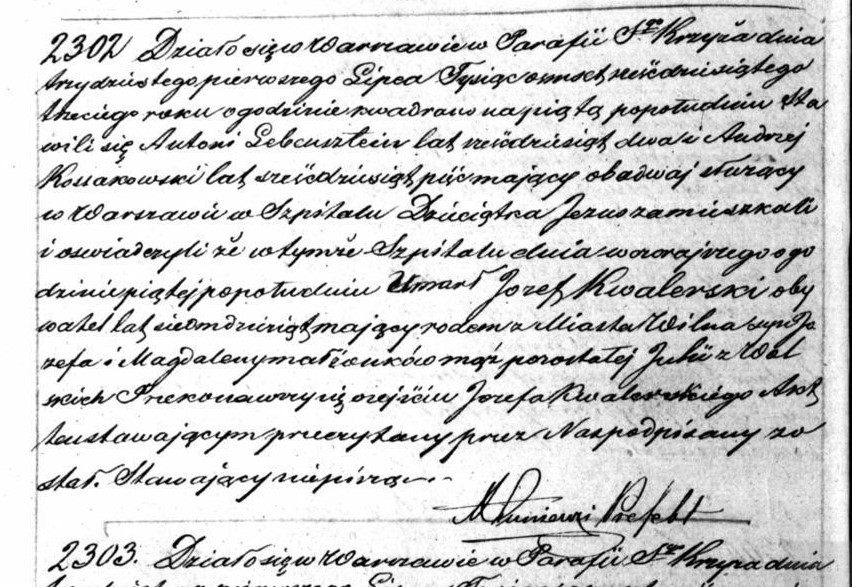 2302 Działo się w Warszawie w Parafii Sgo Krzyża dnia
trzydziestego pierwszego Lipca Tysiąc ośmset sześćdziesiątego
trzeciego roku o godzinie kwadrans na piątą popołudniu Sta
wili się Antoni lat sześćdziesiąt dwa i Andrzej
Kossakowski lat sześćdziesiąt pięć mający obadwaj służący
w Warszawie w Szpitalu Dzieciątka Jezus zamieszkali
i oświadczyli że w tymże Szpitalu dnia wczorajszego o go
dzinie piątej popołudniu Umarł Jozef Kwalerski oby
watel lat siedmdziesiąt mający rodem z Miasta Wilna syn Jo
zefa i Magdaleny małżonków mąż pozostałej Julii z Wol
skich Przekonawszy się o zejściu Jozefa Kwalerskiego Akt
ten stawającym przeczytany przez Nas podpisany zo
stał. Stawający niepiszą
Prefekt
2303. Działo się w Warszawie w Parafii Sgo Krzyża dnia